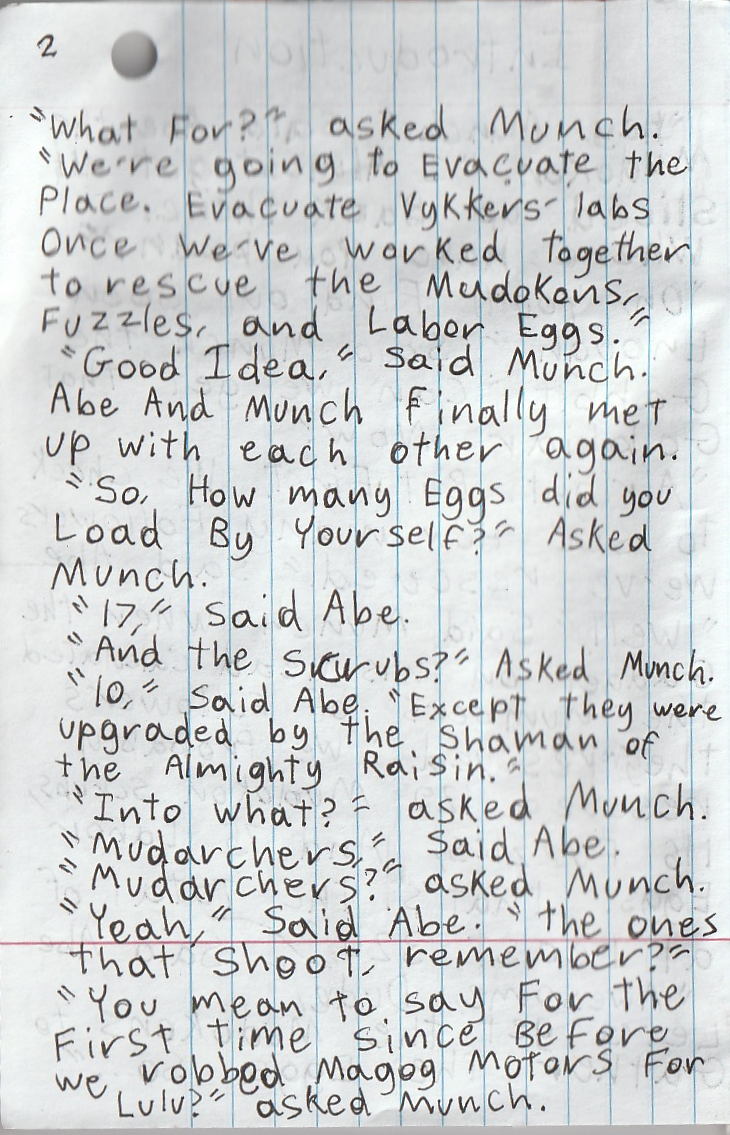 2
"What For?" asked Munch.
"We're going to Evacuate the
Place. Evacuate Vykkers' labs
Once we've worked together
to rescue the Mudokons,
Fuzzles, and Labor Eggs."
"Good Idea," Said Munch.
Abe And Munch Finally met
up with each other again.
"So, How many Eggs did you
Load By Yourself?" Asked
Munch.
"17," Said Abe.
"And the Scrubs?" Asked Munch.
"10," Said Abe. "Except they were
upgraded by the Shaman of
the Almighty Raisin."
"Into what?" asked Munch.
"Mudarchers," Said Abe.
"Mudarchers?" asked Munch.
"Yeah," Said Abe. "the ones
that shoot, remember?"
"You mean to say For the
First time since Before
we robbed Magog Motors For
Lulu?" asked Munch.